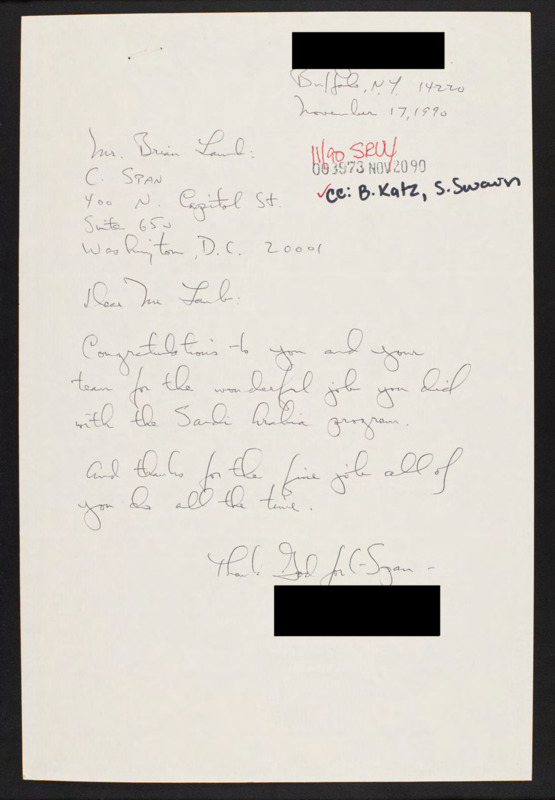 Buffalo, N.Y. 14220
November 17, 1990
Mr. Brian Lamb:
C. SPAN
400 N. Capitol St.
Suite 650
Washington, D.C. 20001
11/90
003973 NOV 20 90
✓cc: B. Katz, S. Swain
Dear Mr. Lamb:
Congratulations to you and your
team for the wonderful job you did
with the Saudi Arabia program.
And thanks for the fine job all of
you do all the time.
Thank God for C-Span -